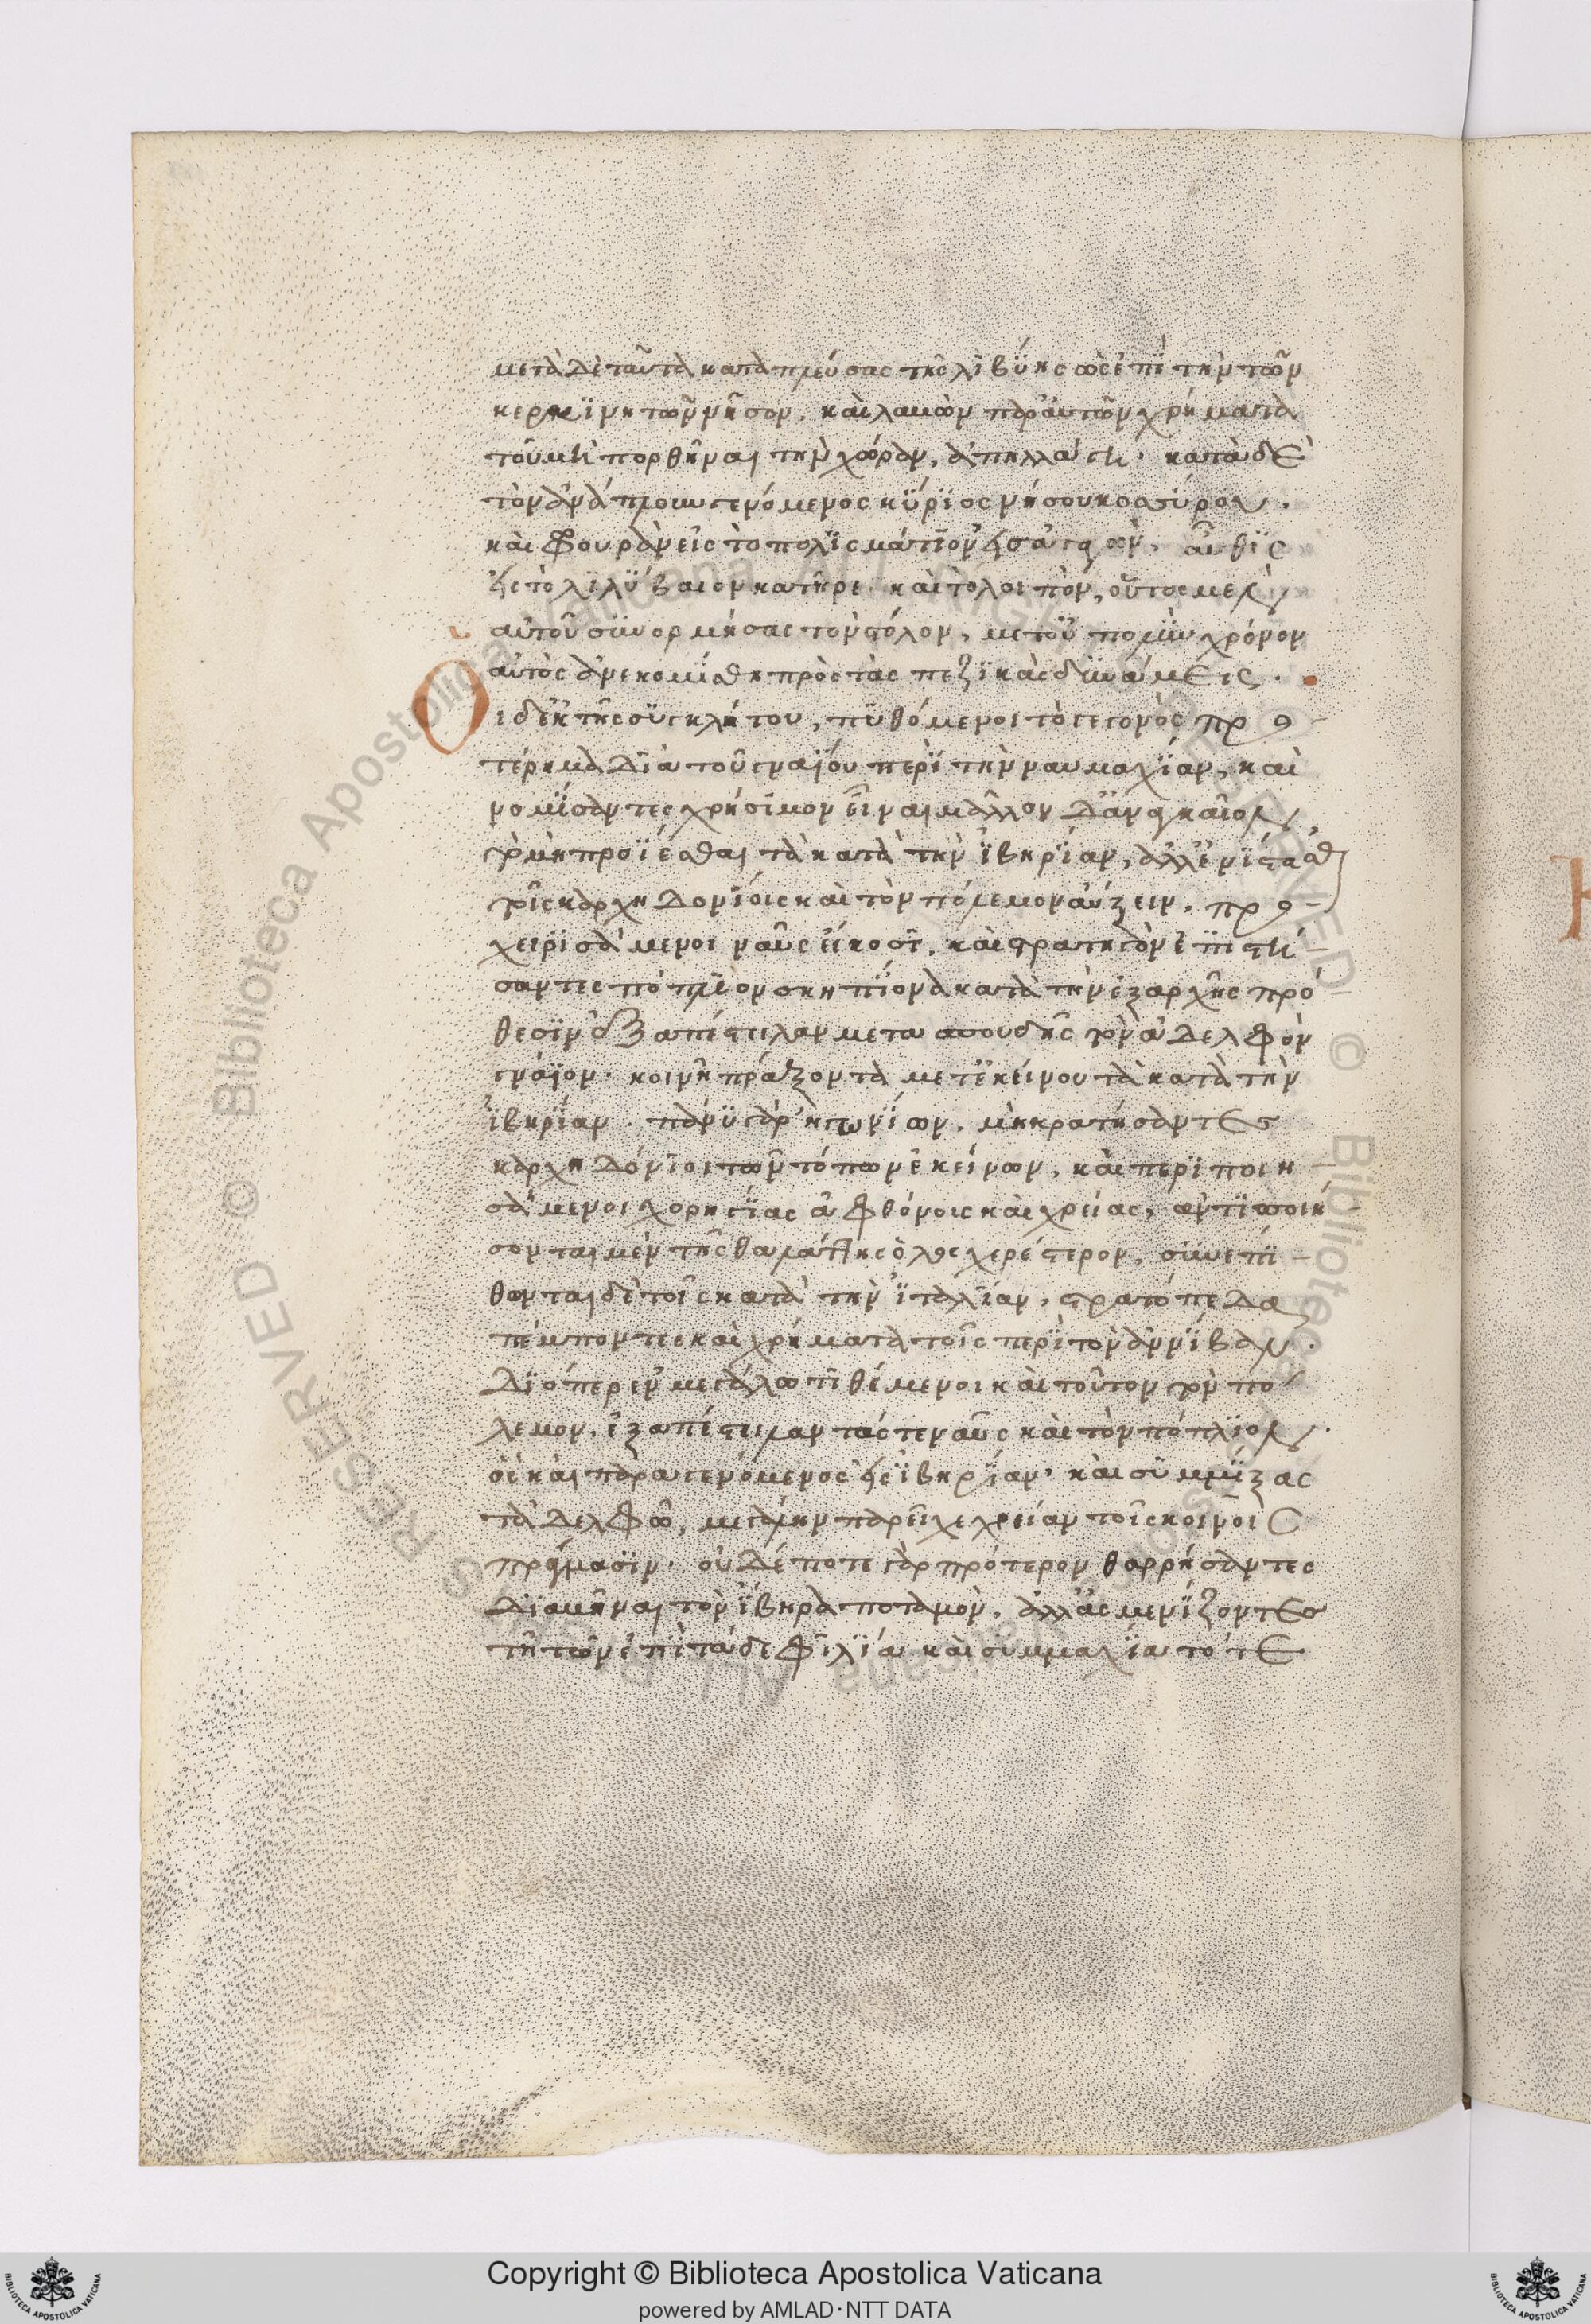 μετὰ δὲ ταῦτα καταπλεύσας τῆς λϊβύης ὡς ἐπῒ τὴν τῶν
κερκϊνητῶν νῆσον, καὶ λαβὼν παρ' αὐτῶν χρήματα
τοῦ μὴ πορθῆναι τὴν χώραν, ἀπηλλάγη. κατὰ δὲ
τὸν ἀνάπλουν γενόμενος κύρϊος νήσου κοσσύρου.
καὶ φρουρὰν εἰς τὸ πολϊσμάτϊον εἰσαγαγὼν, αὖθϊς
εἰς τὸ λϊλύβαιον κατῆρε. καὶ τὸ λοιπὸν, οὗτος μὲν
αὐτοῦ συνορμήσας τὸν στόλον, μετ' οὐ πολὺν χρόνον
αὐτὸς ἀνεκομίσθη πρὸς τὰς πεζϊκὰς δυνάμεις.
Οι δ' ἐκ τῆς συγκλήτου, πυθόμενοι τὸ γεγονὸς προ
τέρημα δϊὰ τοῦ γναΐου περὶ τὴν ναυμαχίαν, καὶ
νομίσαντες χρήσιμον εἶναι μᾶλλον δ' ἀναγκαῖον
τὸ μὴ προΐεσθαι τὰ κατὰ τὴν ἰβηρίαν, ἀλλ' ἐνίστασθ
τοῖς καρχηδονίοις καὶ τὸν πόλεμον αὔξειν. προ
χειρισάμενοι ναῦς εἴκοσϊ, καὶ στρατηγὸν ἐπιστή
σαντες πόπλϊον σκηπίωνα κατὰ τὴν ἐξαρχῆς πρό
θεσϊν, ἐξαπέστειλαν μετὰ σπουδῆς τὸν ἀδελφὸν
γνάϊον. κοινῆ πράξοντα μετ' ἐκείνου τὰ κατὰ τὴν
ἰβηρίαν. πάνυ γὰρ ἠγωνίων, μὴ κρατήσαντες
καρχηδόνϊοι τῶν τόπων ἐκείνων, καὶ περιποιη
σάμενοι χορηγίας ἀφθόνοις καὶ χρείας, ἀντιποιή
σονται μὲν τῆς θαλάττης ὁλοσχερέστερον, συνεπϊ
θῶνται δὲ τοῖς κατὰ τὴν ἰταλίαν, στρατόπεδα
πέμποντες καὶ χρήματα τοῖς περὶ τὸν ἀννίβαν.
δϊόπερ ἐν μεγάλω τϊθέμενοι καὶ τοῦτον τὸν πό
λεμον, ἐξαπέστειλαν τάς τε ναῦς καὶ τὸν πόπλϊον.
ὃς καὶ παραγενόμενος εἰς ἰβηρίαν, καὶ συμμίξας
τἀδελφῶ, μεγάλην παρεῖχε χρείαν τοῖς κοινοῖς
πράγμασϊν. οὐδέποτε γὰρ πρότερον θαρρήσαντες
διαβῆναι τὸν ἴβηρα ποταμὸν, ἀλλ' ἀσμενίζοντες
τῆ τῶν ἐπὶ τάδε φιλία καὶ συμμαχία τότε
Copyright © Biblioteca Apostolica Vaticana
powered by AMLAD·NTT DATA